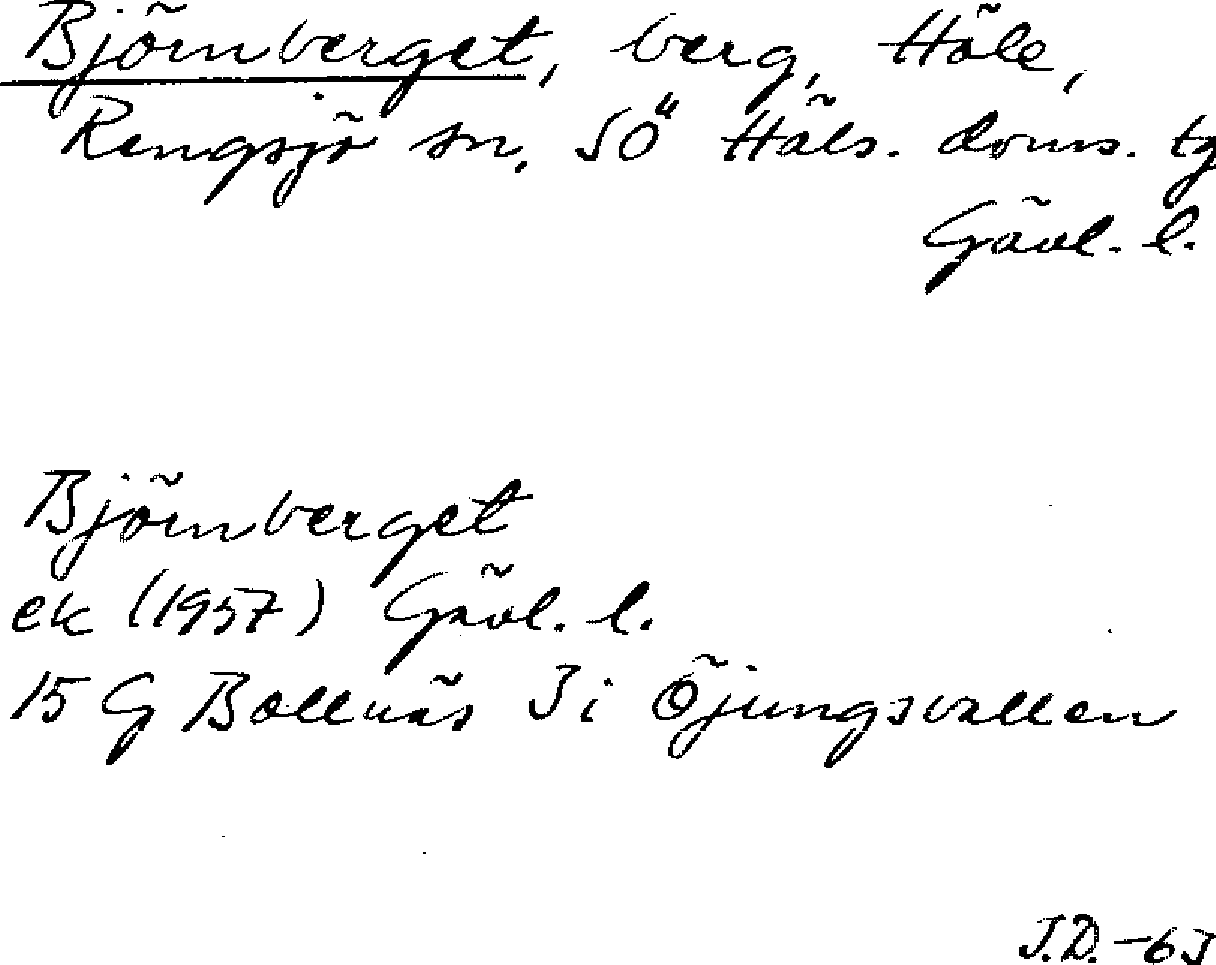 Björnberget, berg, Häle,
Rengsjö sn, SÖ Häls. doms. tg
Gävl. l.
Björnberget
ek (1957) Gävl. l.
15 G Bollnäs 3 i Öjungsvallen
J.D. -63